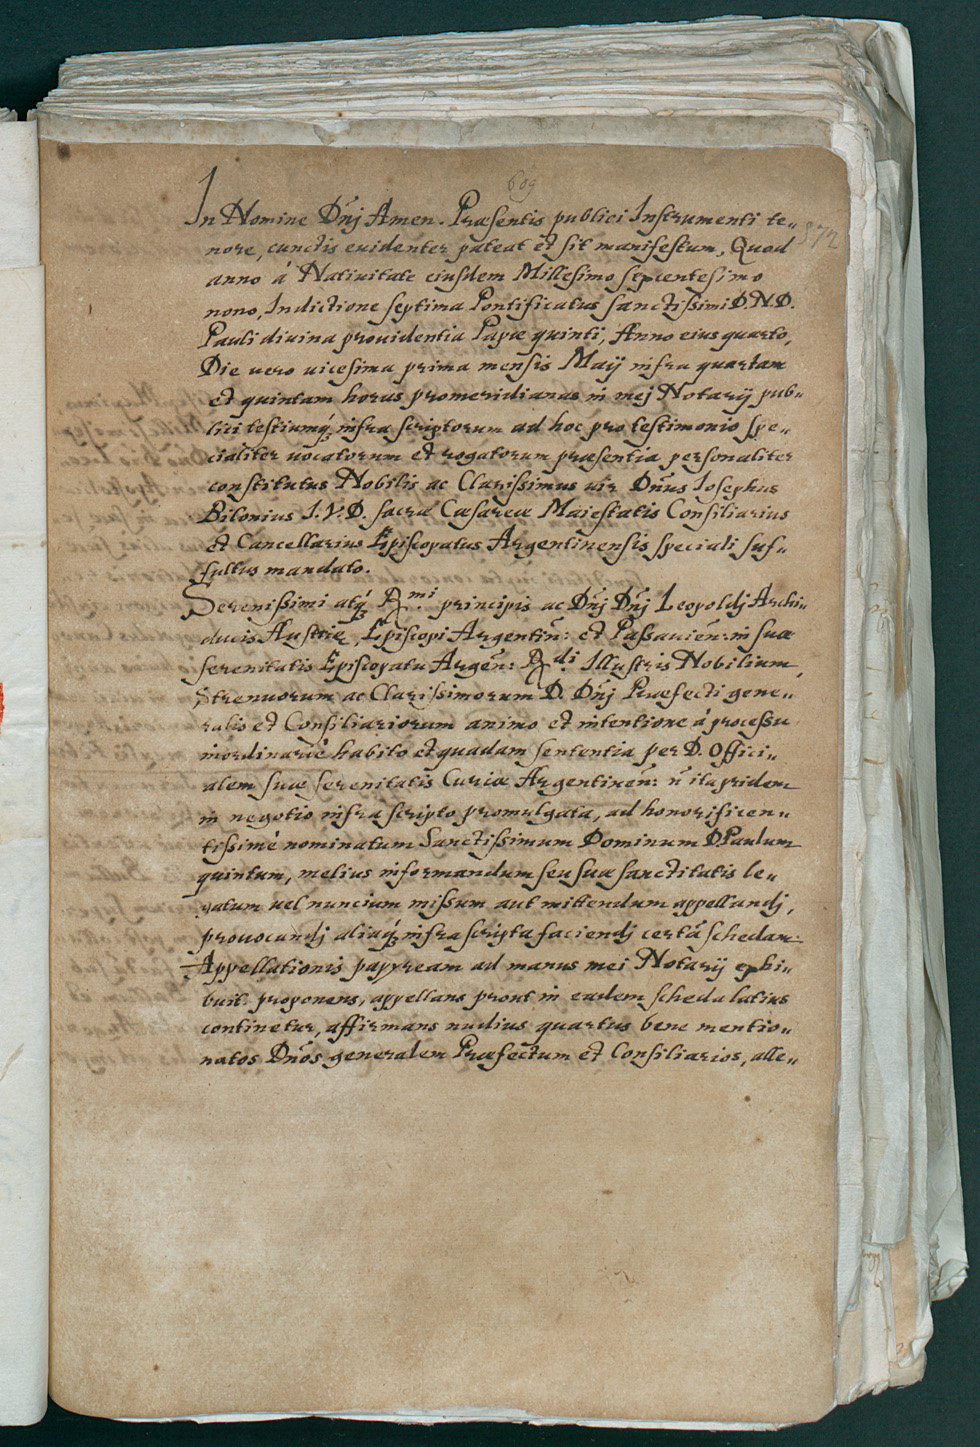 609
In Nomine Dñj Amen. Præsentis publici Instrumenti te„
nore, cunctis euidenter pateat et sit manifestum, Quod
anno á Natiuitate eiusdem Millesimo sexcentesimo
nono, Indictione septima Pontificatus sanctissimi D.N.D.
Pauli diuina prouidentia Papæ quinti, Anno eius quarto,
Die uero uicesima prima mensis Maÿ infra quartam
et quintam horas promeridianas in mej Notarÿ pub„
lici testiumq́ infra scriptorum ad hoc pro testimonio spe„
cialiter uocatorum et rogatorum præsentia personaliter
constitutus Nobilis ac Clarissimus uir Dñus Iosephus
Bilonius I.V.D. sacræ Cæsareæ Maiestatis Consiliarius
et Cancellarius Episcopatus Argentinensis speciali suf„
fultus mandato.
Serenissimi atq́ R.mi principis ac Dñj Dñj Leopoldj Archi„
ducis Austrię, Episcopi Argentiñ: et Passauieñ: in suæ
serenitatis Episcopatu Argeñ: R.di Illustris Nobilium,
Strenuorum ac Clarissimorum D. Dñj Præfecti gene„
ralis et Consiliariorum animo et intentione á processu
inordinarié habito et quadam sententia per D. Offici„
alem suæ serenitatis Curiæ Argentineñ: ñ ita pridem
in negotio infra scripto promulgata, ad honorificen„
tissimé nominatum Sanctissimum Dominum D. Paulum
quintum, melius informandum seu suæ sanctitatis le„
gatum uel nuncium missum aut mittendum appellandj,
prouocandj aliaq́ infra scripta faciendj certã schedam
Appellationis papyream ad manus mei Notarÿ exhi„
buit proponens, appellans prout in eadem scheda latius
continetur, affirmans nudius quartus bene mentio„
natos Dños generalem Præfectum et Consiliarios, alle„